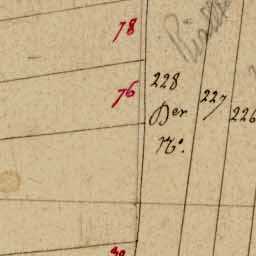 78
76
228
227
226
Der
N°.